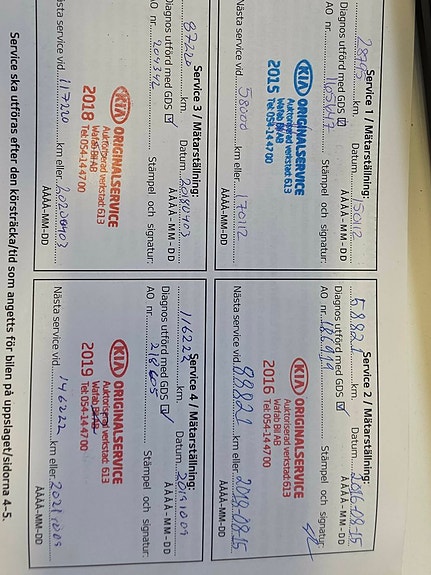 Service 1 / Mätarställning:
28995 km. Datum 150112
ÅÅÅÅ-MM-DD
Diagnos utförd med GDS
AO nr. Stämpel och signatur:
KIA ORIGINALSERVICE
Auktoriserad verkstad: 613
Wafab Bil AB
2015 Tel: 054-14 47 00
Nästa service vid 58000 km eller 170112
ÅÅÅÅ-MM-DD
Service 2 / Mätarställning:
58821 km. Datum 2016-08-15
ÅÅÅÅ-MM-DD
Diagnos utförd med GDS
AO nr. Stämpel och signatur:
KIA ORIGINALSERVICE
Auktoriserad verkstad: 613
Wafab Bil AB
2016 Tel: 054-14 47 00
Nästa service vid 88821 km eller 2018-08-15
ÅÅÅÅ-MM-DD
Service 3 / Mätarställning:
87220 km. Datum 20180903
ÅÅÅÅ-MM-DD
Diagnos utförd med GDS
AO nr. 204342 Stämpel och signatur:
KIA ORIGINALSERVICE
Auktoriserad verkstad: 613
Wafab Bil AB
2018 Tel: 054-14 47 00
Nästa service vid 117220 km eller 20200903
ÅÅÅÅ-MM-DD
Service 4 / Mätarställning:
116222 km. Datum 20191009
ÅÅÅÅ-MM-DD
Diagnos utförd med GDS
AO nr. 218605 Stämpel och signatur:
KIA ORIGINALSERVICE
Auktoriserad verkstad: 613
Wafab Bil AB
2019 Tel: 054-14 47 00
Nästa service vid 146222 km eller 20211009
ÅÅÅÅ-MM-DD
Service ska utföras efter den körsträcka/tid som angetts för bilen på uppslaget/sidorna 4-5.